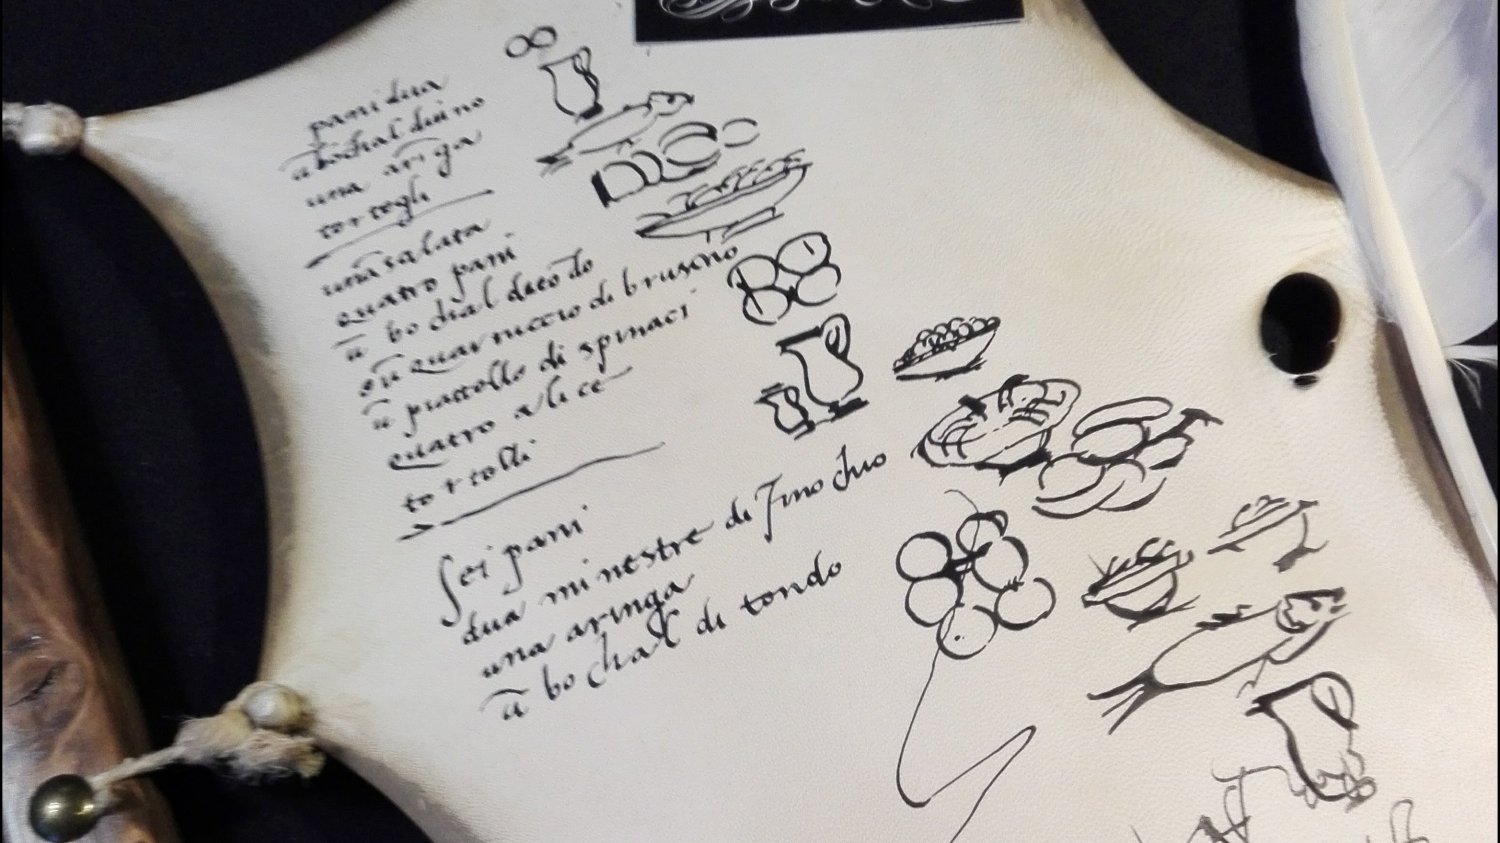 pani dua
ū bochal di uino
una ariga
tortegli
una salata
quatro pani
ū bochal di tōdo
ū quartuccio di bruscno
ū piattello di spinaci
quatro alice
tortelli
sei pani
dua minestre di finochio
una aringa
ū bochal di tondo